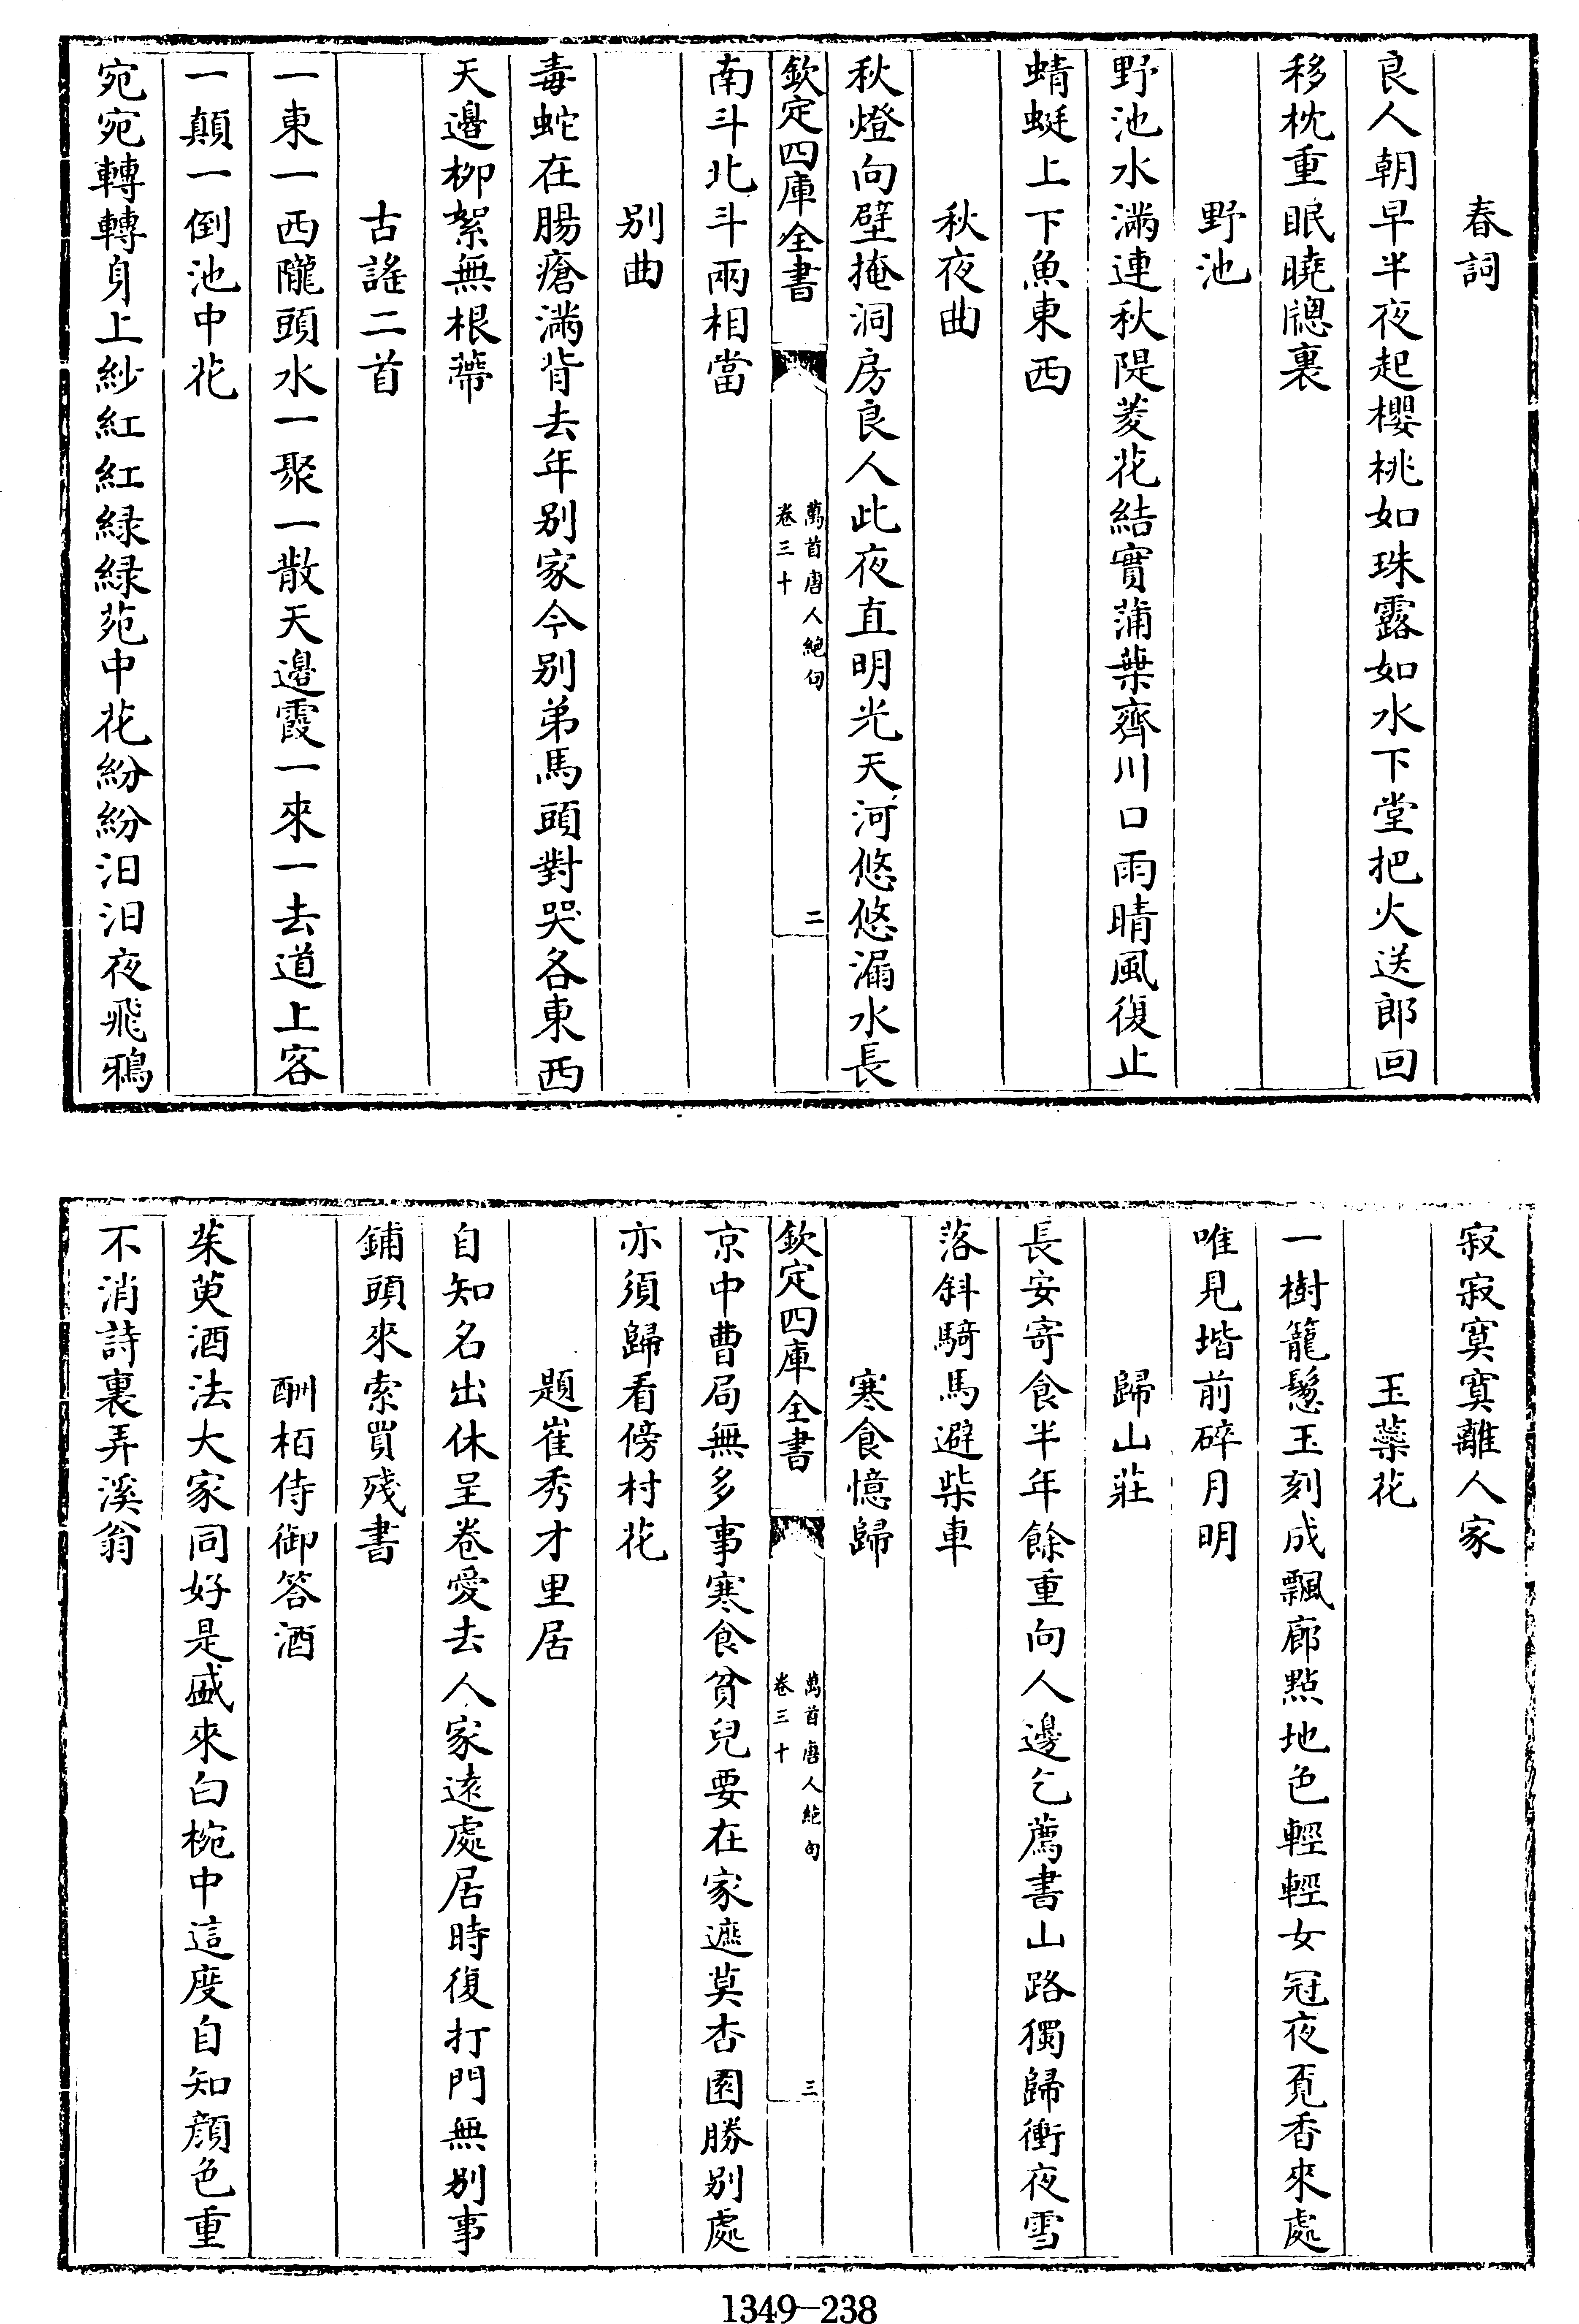 春詞
良人朝早半夜起櫻桃如珠露如水下堂把火送郎回
移枕重眠曉牕裏
野池
野池水滿連秋隄菱花結實蒲葉齊川口雨晴風復止
蜻蜓上下魚東西
秋夜曲
秋燈向壁掩洞房良人此夜直明光天河悠悠漏水長
欽定四庫全書
萬首唐人絶句
卷三十
二
南斗北斗兩相當
别曲
毒蛇在腸瘡滿背去年别家今别弟馬頭對哭各東西
天邉柳絮無根蔕
古謠二首
一東一西隴頭水一聚一散天邉霞一來一去道上客
一顛一倒池中花
宛宛轉轉身上紗紅紅緑緑苑中花紛紛汨汨夜飛鴉
寂寂寞寞離人家
玉蘂花
一樹籠鬆玉刻成飄廊㸃地色輕輕女冠夜覓香來處
唯見堦前碎月明
歸山莊
長安寄食半年餘重向人邊乞薦書山路獨歸衝夜雪
落斜騎馬避柴車
寒食憶歸
欽定四庫全書
萬首唐人絶句
卷三十
三
京中曹局無多事寒食貧兒要在家遮莫杏園勝别處
亦須歸看傍村花
題崔秀才里居
自知名出休呈卷愛去人家逺處居時復打門無别事
鋪頭來索買殘書
酬栢侍御答酒
茱萸酒法大家同好是盛來白椀中這度自知顔色重
不消詩裏弄溪翁
1349—238